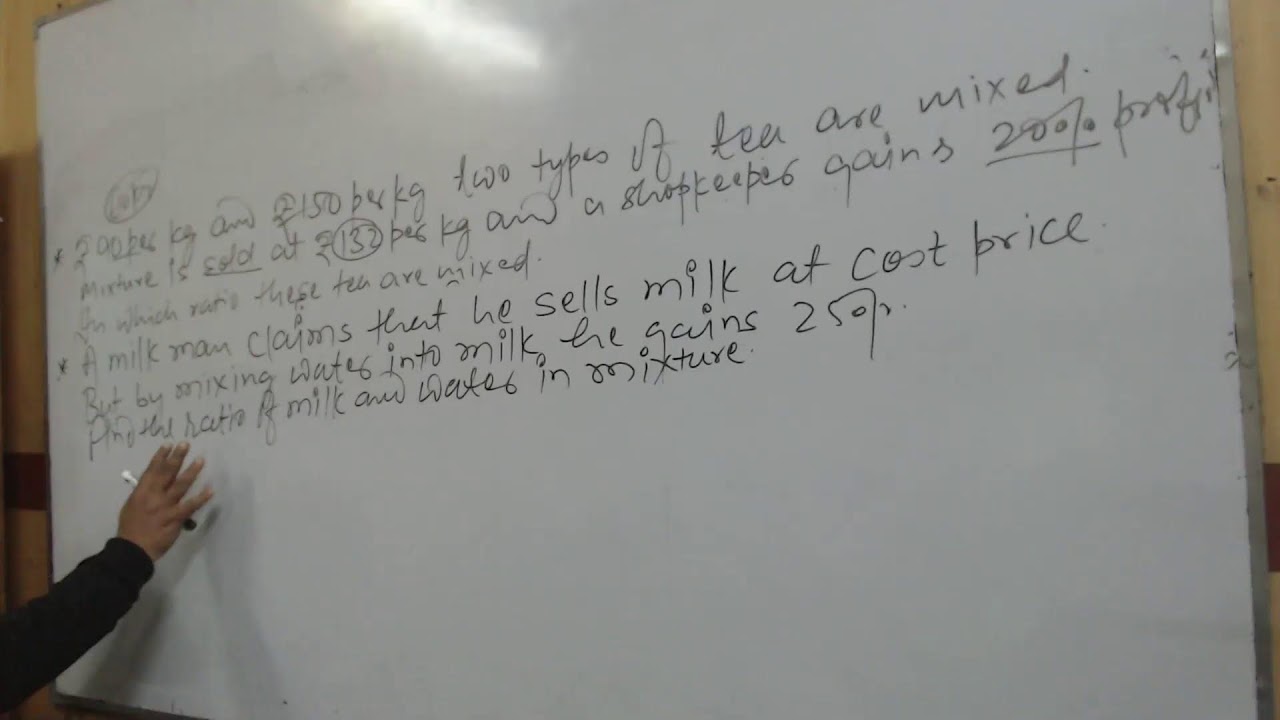 * ₹90 per kg and ₹150 per kg two types of tea are mixed.
Mixture is sold at ₹132 per kg and a shopkeeper gains 20% profit
In which ratio these tea are mixed.
* A milk man claims that he sells milk at cost price.
But by mixing water into milk, he gains 25%.
Find the ratio of milk and water in mixture.